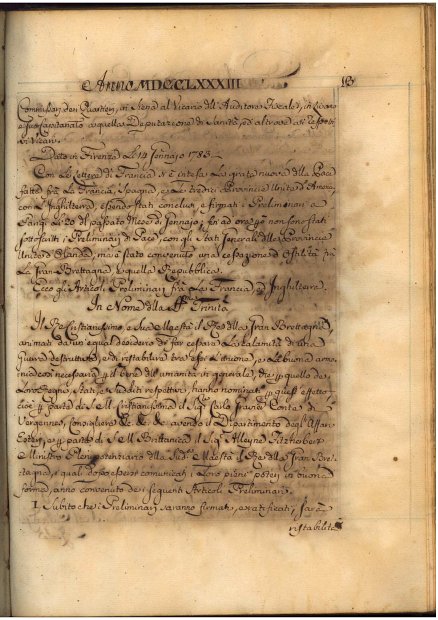 Anno MDCCLXXXIII 13
Commissarj dei Quartieri, in Siena al Vicario dell'Auditore Fiscale, in Livorno
e suo Capitanato a quella Deputazione di Sanità, ed altrove ai
Vicarj.
Dato in Firenze Li 14 Gennajo 1783.
Con Le Lettere di Francia si è intesa La grata nuova della Pace
fatta fra La Francia, Spagna, e Le tredici Provincie Unite d'America,
con L'Inghilterra, essendo stati conclusi, e firmati i Preliminari a
Parigi Li 20 del passato Mese di Gennajo; fin ad ora non sono stati
sottoscritti i Preliminari di Pace, con gli Stati Generali delle Provincie
Unite d'Olanda, ma è stato convenuto una cessazione d'Ostilità fra
La Gran Brettagna, e quella Repubblica.
Ecco gli Articoli Preliminari fra La Francia, ed Inghilterra.
In Nome della SS.ma Trinità
Il Re Cristianissimo, e Sua Maestà il Re della Gran Brettagna,
animati da un'egual desiderio di far cessare La calamità di una
Guerra destruttiva, e di ristabilire tra essi L'Unione, e La buona armo
nia così necessaria p il bene dell'umanità in generale, che p quello de
Loro Regni, Stati, e Sudditi rispettivi, hanno nominati p quest'effetto,
cioè p parte di S. M. Cristianissima il Sig. Carlo Conte di
Vergennes, Consigliere &c. &c. &c. avendo il Dipartimento degl'Affari
Esteri, e p parte di S. M. Brittanica il Sig. Alleyne Fitzherbert
Ministro Plenipotenziario della Sud.a Maestà il Re della Gran Bret
tagna, i quali dopo essersi comunicati i Loro pieni poteri in buona
forma, anno convenuto de' seguenti Articoli Preliminari.
1. Subito che i Preliminarj saranno firmati, e ratificati, sarà
ristabilita